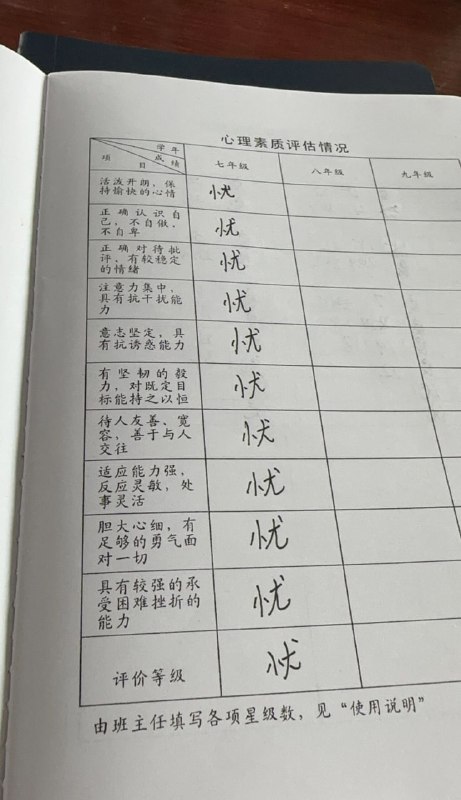 心理素质评估情况
学年
成绩
项目
七年级 八年级 九年级
活泼开朗,保
持愉快的心情
忧
正确认识自
己,不自傲,
不自卑
忧
正确对待批
评,有较稳定
的情绪
忧
注意力集中,
具有抗干扰能
力
忧
意志坚定,具
有抗诱惑能力
忧
有坚韧的毅
力,对既定目
标能持之以恒
忧
待人友善、宽
容,善于与人
交往
忧
适应能力强,
反应灵敏,处
事灵活
忧
胆大心细,有
足够的勇气面
对一切
忧
具有较强的承
受困难挫折的
能力
忧
评价等级
忧
由班主任填写各项星级数,见“使用说明”